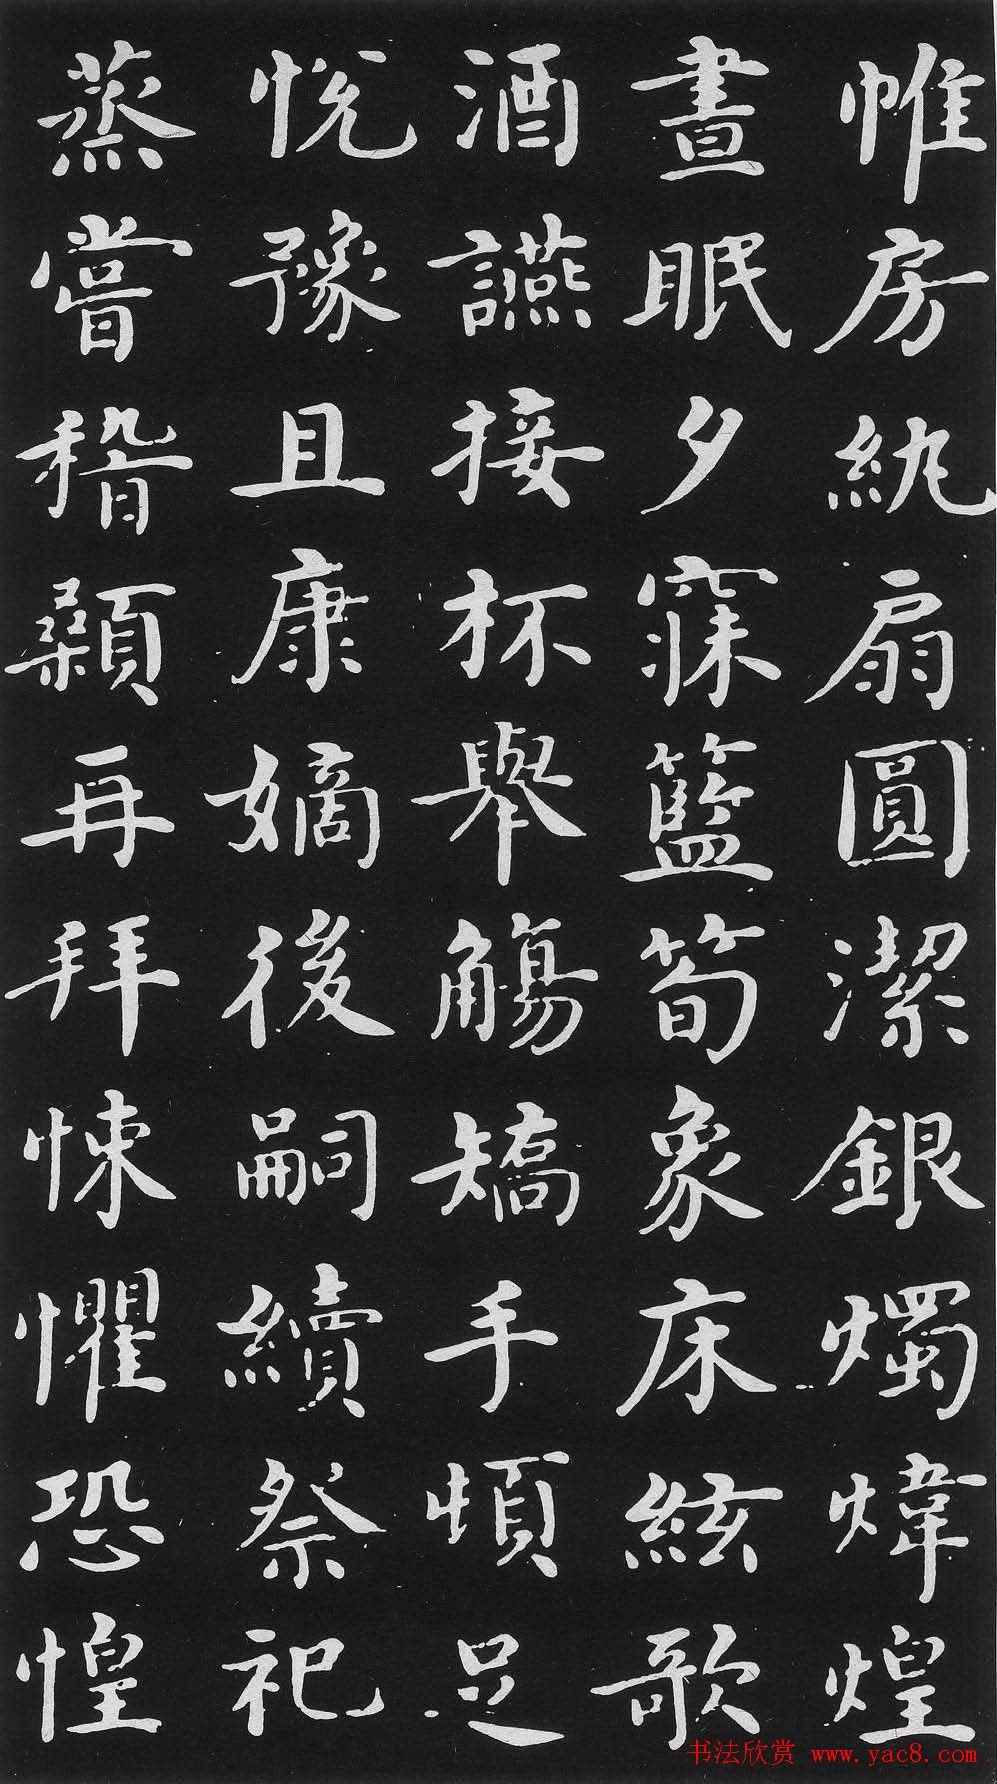 帷房紈扇圓潔銀燭煒煌
晝眠夕寐籃筍象床絃歌
酒讌接杯舉觴矯手頓足
悅豫且康嫡後嗣續祭祀
蒸嘗稽顙再拜悚懼恐惶
书法欣赏 www.yac8.com